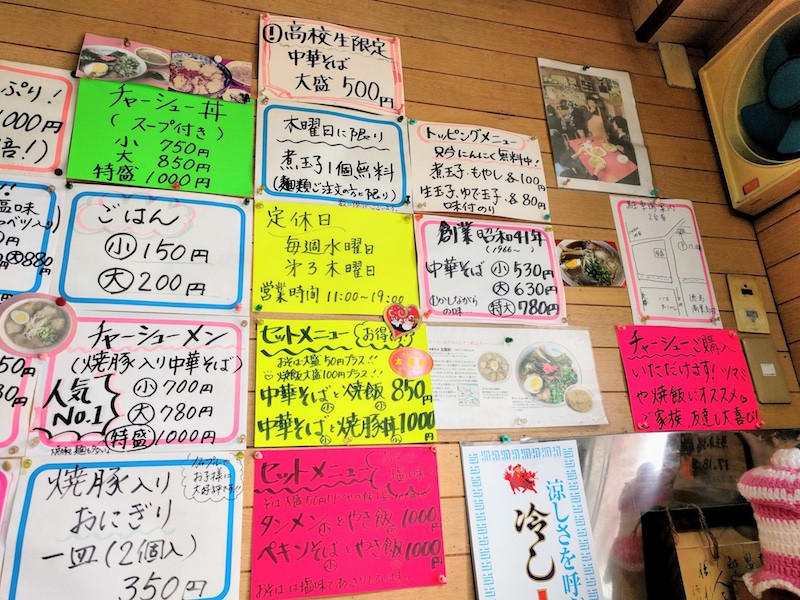 ぷり!
1000円
チャーシュー丼
(スープ付き)
小 750円
大 850円
特盛 1000円
!高校生限定
中華そば
大盛 500円
木曜日に限り
煮玉子1個無料
(麺類ご注文の方に限り)
トッピングメニュー
只今にんにく無料中!
煮玉子・もやし 各100円
生玉子、ゆで玉子・各80円
味付のり
塩味
880円
ごはん
小 150円
大 200円
定休日
毎週水曜日
第3木曜日
営業時間 11:00~19:00
創業昭和41年
(1966~)
中華そば 小 530円
大 630円
特大 780円
むかしながら
の味
チャーシューメン
(焼豚入り中華そば)
人気
No.1
小 700円
大 780円
特盛 1000円
セットメニュー お得
おそば大盛50円プラス!!
焼飯大盛100円プラス!
中華そば小と焼飯 850円
中華そば小と焼豚丼小 1000円
チャーシューご購入
いただけます!ツマミ
や焼飯にオススメ。
ご家族、友達も大喜び!
焼豚入り
おにぎり
一皿(2個入)
350円
お子様に
大好評です!!
セットメニュー
塩味
タンメン小とやき飯小 1000円
ペキンそば小とやき飯小 1000円
おそばは塩味であっさりしています
涼しさを呼
冷し